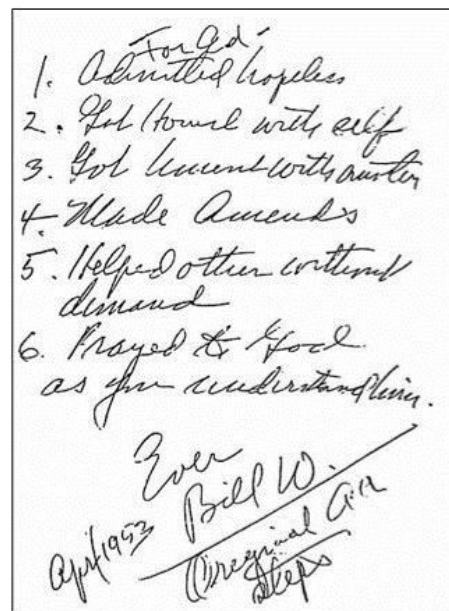 For Ed-
1. Admitted hopeless
2. Got Honest with self
3. Got honest with another
4. Made Amends
5. Helped other without
demand
6. Prayed to God
as you understand him.
Ever
Bill W.
April 1953
Original AA
Steps